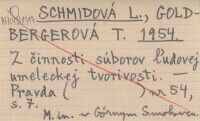 SCHMIDOVÁ L., GOLD-
BERGEROVÁ T. 1954
Z činnosti súborov ľudovej
umeleckej tvorivosti. —
Pravda ( ) nr 54,
s. 7.
M. in. w Górnym Smokovcu.